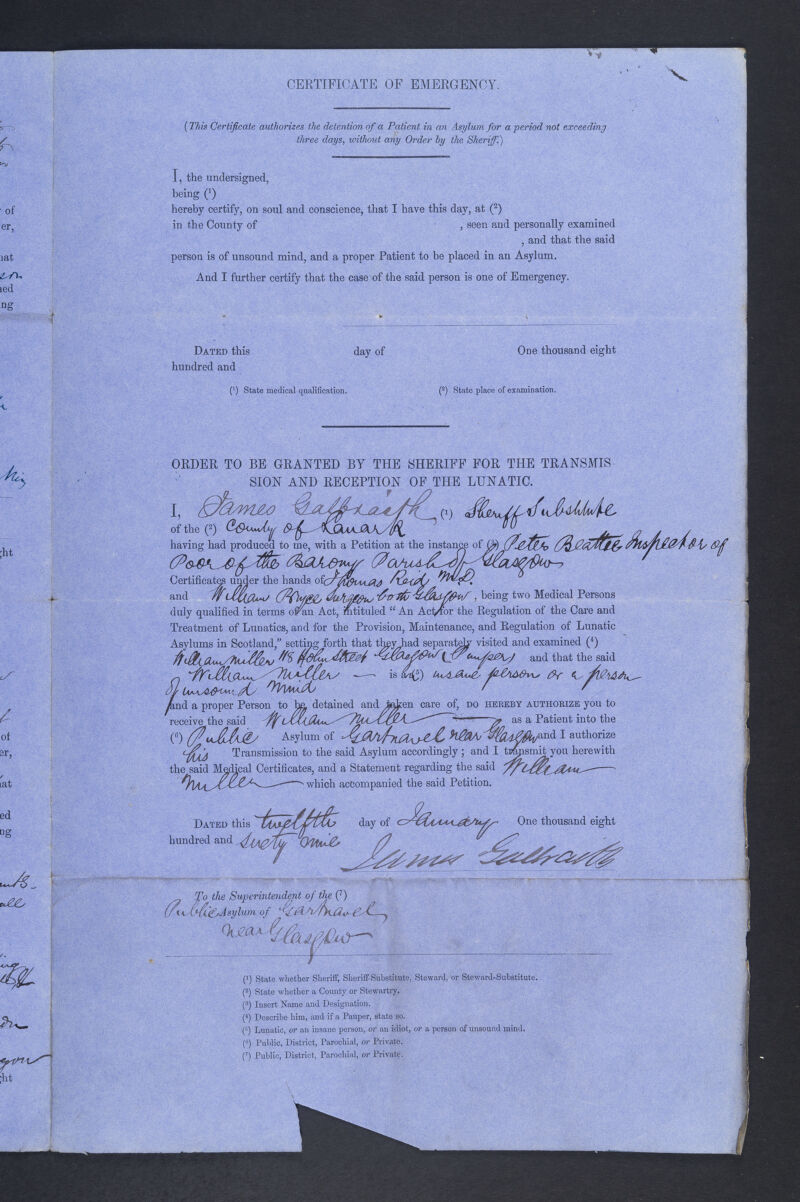 CERTIFICATE OF EMERGENCY.
(This Certificate authorizes the detention of a Patient in an Asylum for a period not exceeding
three days, without any Order by the Sheriff.)
I, the undersigned,
being (¹)
hereby certify, on soul and conscience, that I have this day, at (²)
in the County of , seen and personally examined
, and that the said
person is of unsound mind, and a proper Patient to be placed in an Asylum.
And I further certify that the case of the said person is one of Emergency.
DATED this day of One thousand eight
hundred and
(¹) State medical qualification. (²) State place of examination.
ORDER TO BE GRANTED BY THE SHERIFF FOR THE TRANSMIS
SION AND RECEPTION OF THE LUNATIC.
I, James Galbraith (¹) Sheriff Substitute
of the (²) County of Lanark
having had produced to me, with a Petition at the instance of (³) Peter Beattie Inspector of
Poor of the Barony Parish of Glasgow
Certificates under the hands of Thomas Reid M.D.
and William Bryce Surgeon both Glasgow, being two Medical Persons
duly qualified in terms of an Act, intituled "An Act for the Regulation of the Care and
Treatment of Lunatics, and for the Provision, Maintenance, and Regulation of Lunatic
Asylums in Scotland," setting forth that they had separately visited and examined (⁴)
William Miller 118 Holm Street Glasgow (Pauper) and that the said
William Miller — is a (⁵) insane person or a person
of unsound mind
and a proper Person to be detained and taken care of, DO HEREBY AUTHORIZE you to
receive the said William Miller — as a Patient into the
(⁶) Public Asylum of Gartnavel near Glasgow and I authorize
his Transmission to the said Asylum accordingly; and I transmit you herewith
the said Medical Certificates, and a Statement regarding the said William
Miller — which accompanied the said Petition.
DATED this twelfth day of January One thousand eight
hundred and sixty nine
James Galbraith
To the Superintendent of the (⁷)
Public Asylum of Gartnavel
near Glasgow
(¹) State whether Sheriff, Sheriff-Substitute, Steward, or Steward-Substitute.
(²) State whether a County or Stewartry.
(³) Insert Name and Designation.
(⁴) Describe him, and if a Pauper, state so.
(⁵) Lunatic, or an insane person, or an idiot, or a person of unsound mind.
(⁶) Public, District, Parochial, or Private.
(⁷) Public, District, Parochial, or Private.